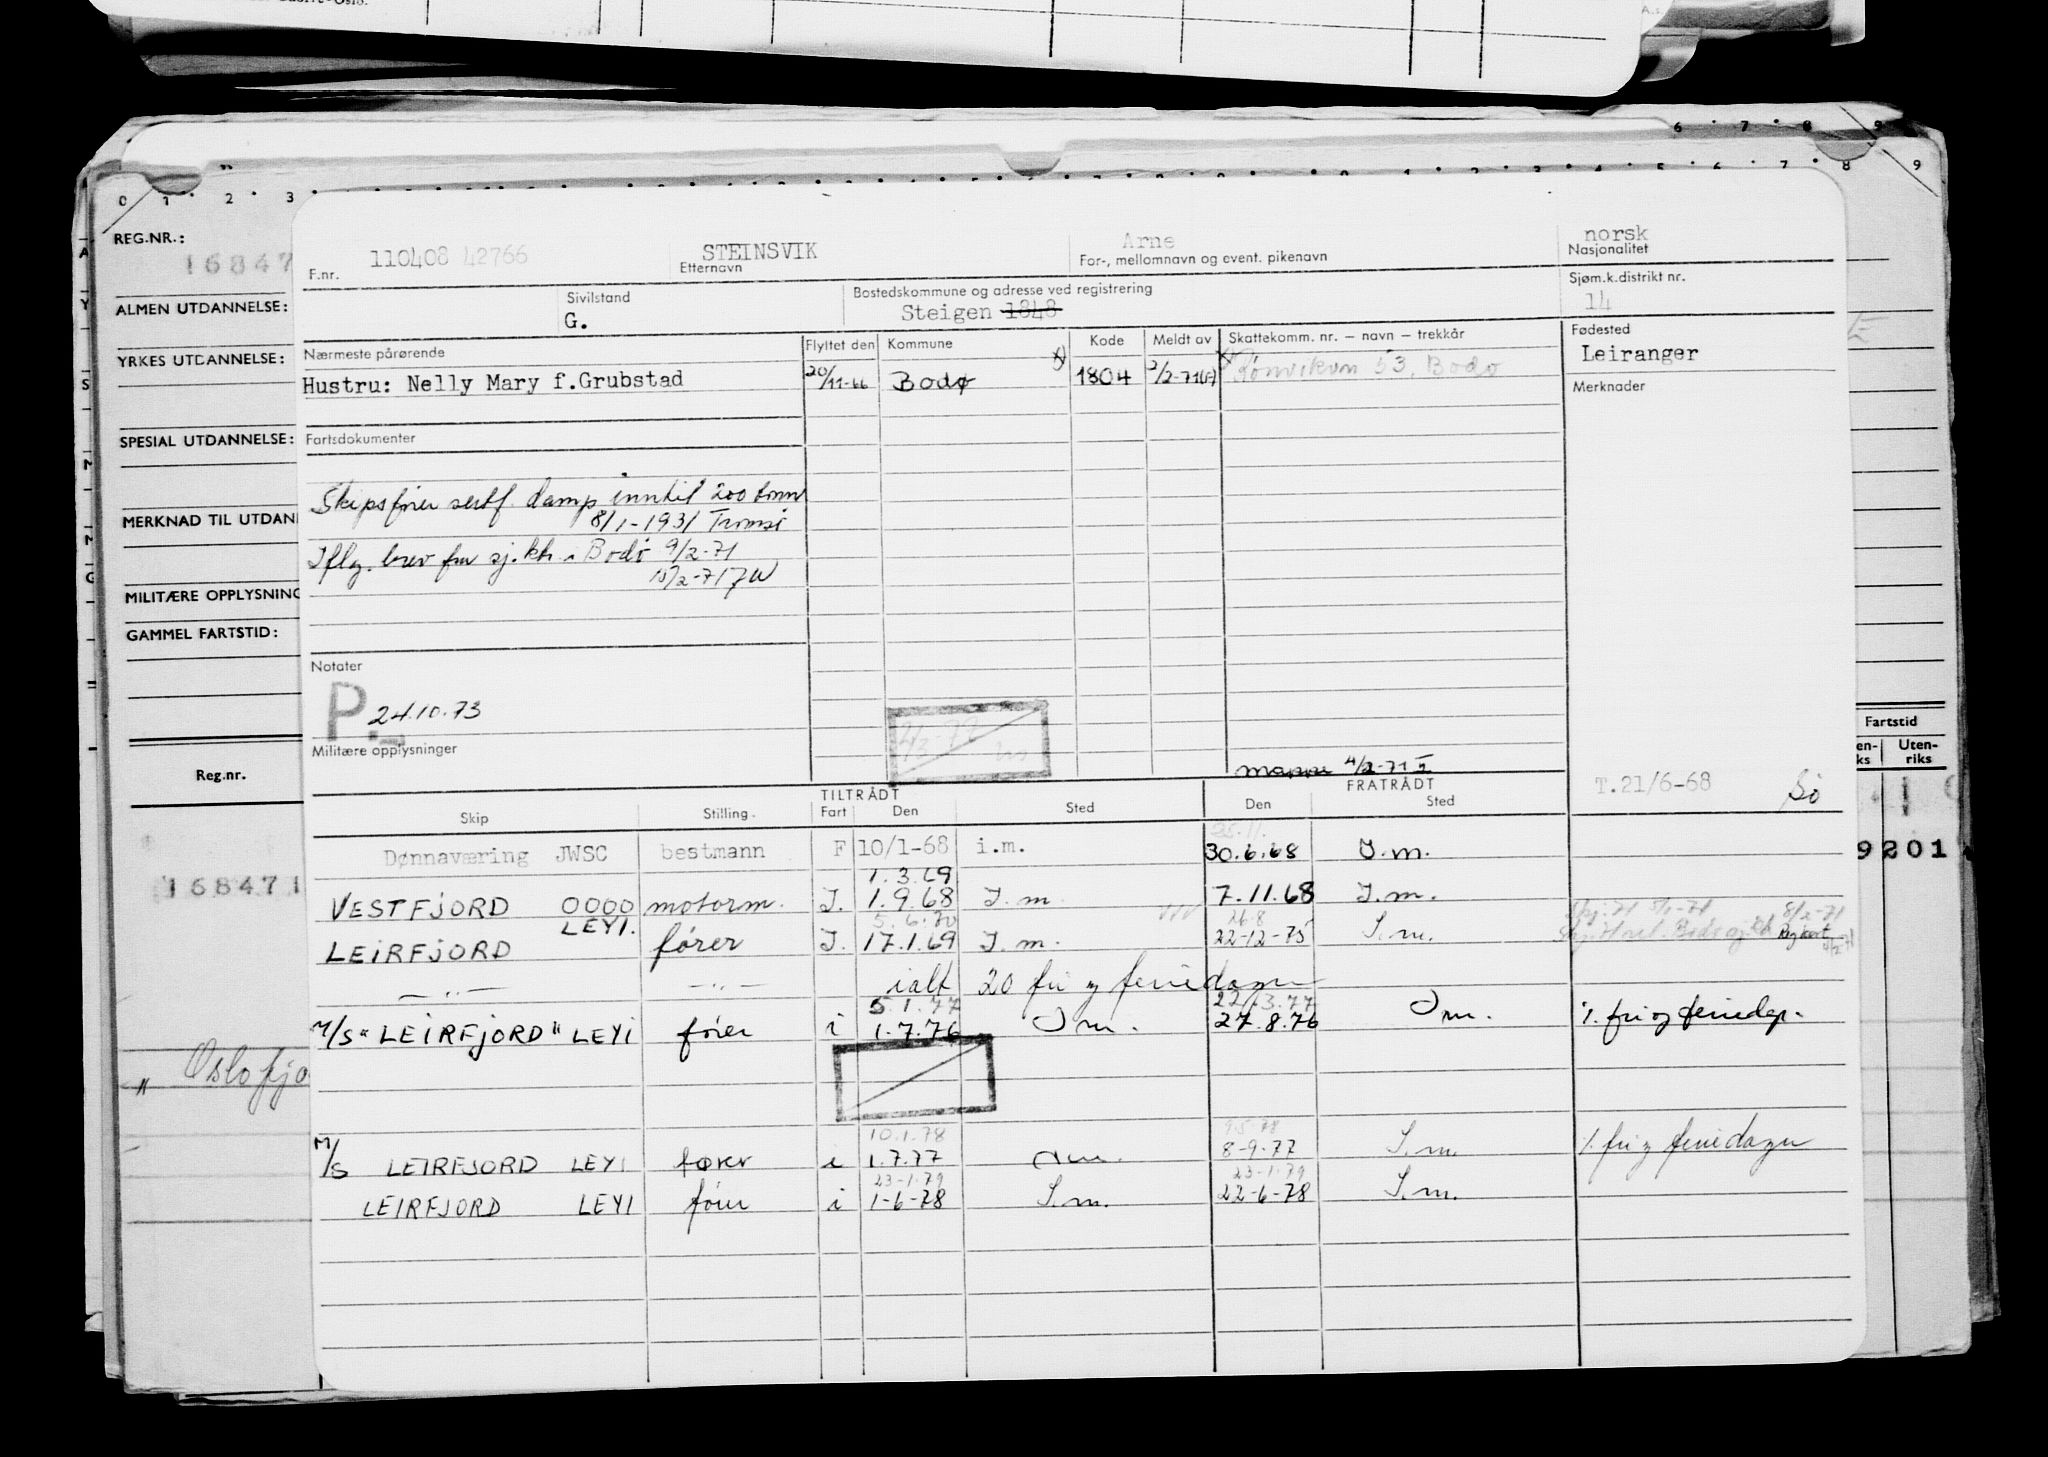 6 . 7 . 8 . 9
0 1 . 2 . 3
REG.NR.: 16847
110408 42766 STEINSVIK Arne norsk
F.nr. Etternavn For-, mellomnavn og event. pikenavn Nasjonalitet
ALMEN UTDANNELSE:
Sivilstand Bostedskommune og adresse ved registrering Sjøm.k.distrikt nr.
G. Steigen 1848 14
YRKES UTDANNELSE:
Nærmeste pårørende Flyttet den Kommune Kode Meldt av Skattekomm. nr. – navn – trekkår Fødested
Hustru: Nelly Mary f.Grubstad 20/11-66 Bodø x) 1804 2/2-71 Rønvikvn 53, Bodø Leiranger
Merknader
SPESIAL UTDANNELSE:
Fartsdokumenter
Skipsfører sertf. damp inntil 200 tonn
8/1-1931 Tromsø
MERKNAD TIL UTDAN
Iflg. brev fra sj.kt. i Bodø 9/2-71
15/2-71 JW
MILITÆRE OPPLYSNING
GAMMEL FARTSTID:
Notater
P. 24.10.73
Militære opplysninger
mappe 4/2-71
Reg.nr.
Fartstid
Uten-
riks
TILTRÅDT FRATRÅDT T.21/6-68 Sö
Skip Stilling. Fart Den Sted Den Sted
25.11.
Dønnaværing JWSC bestmann F 10/1-68 i.m. 30.6.68 I.m.
9201
168471
1.3.69
VESTFJORD OOOO motorm. I. 1.9.68 I.m. 7.11.68 I.m.
LEYI. 5.6.70 26.8
LEIRFJORD fører I. 17.1.69 I.m. 22-12-75 I.m.
—〃— —〃— ialt 20 fri og feriedager
5.1.77 22.3.77
M/S "LEIRFJORD" LEYI fører i 1.7.76 Im. 27.8.76 Im. %. fri og feriedg.
" Oslofjo
10.1.78 9.5.78
M/S LEIRFJORD LEYI fører i 1.7.77 I.m. 8-9-77 I.m. %. fri og feriedager
23-1-79 23-1-79
LEIRFJORD LEYI fører i 1-6-78 I.m. 22-6-78 I.m.